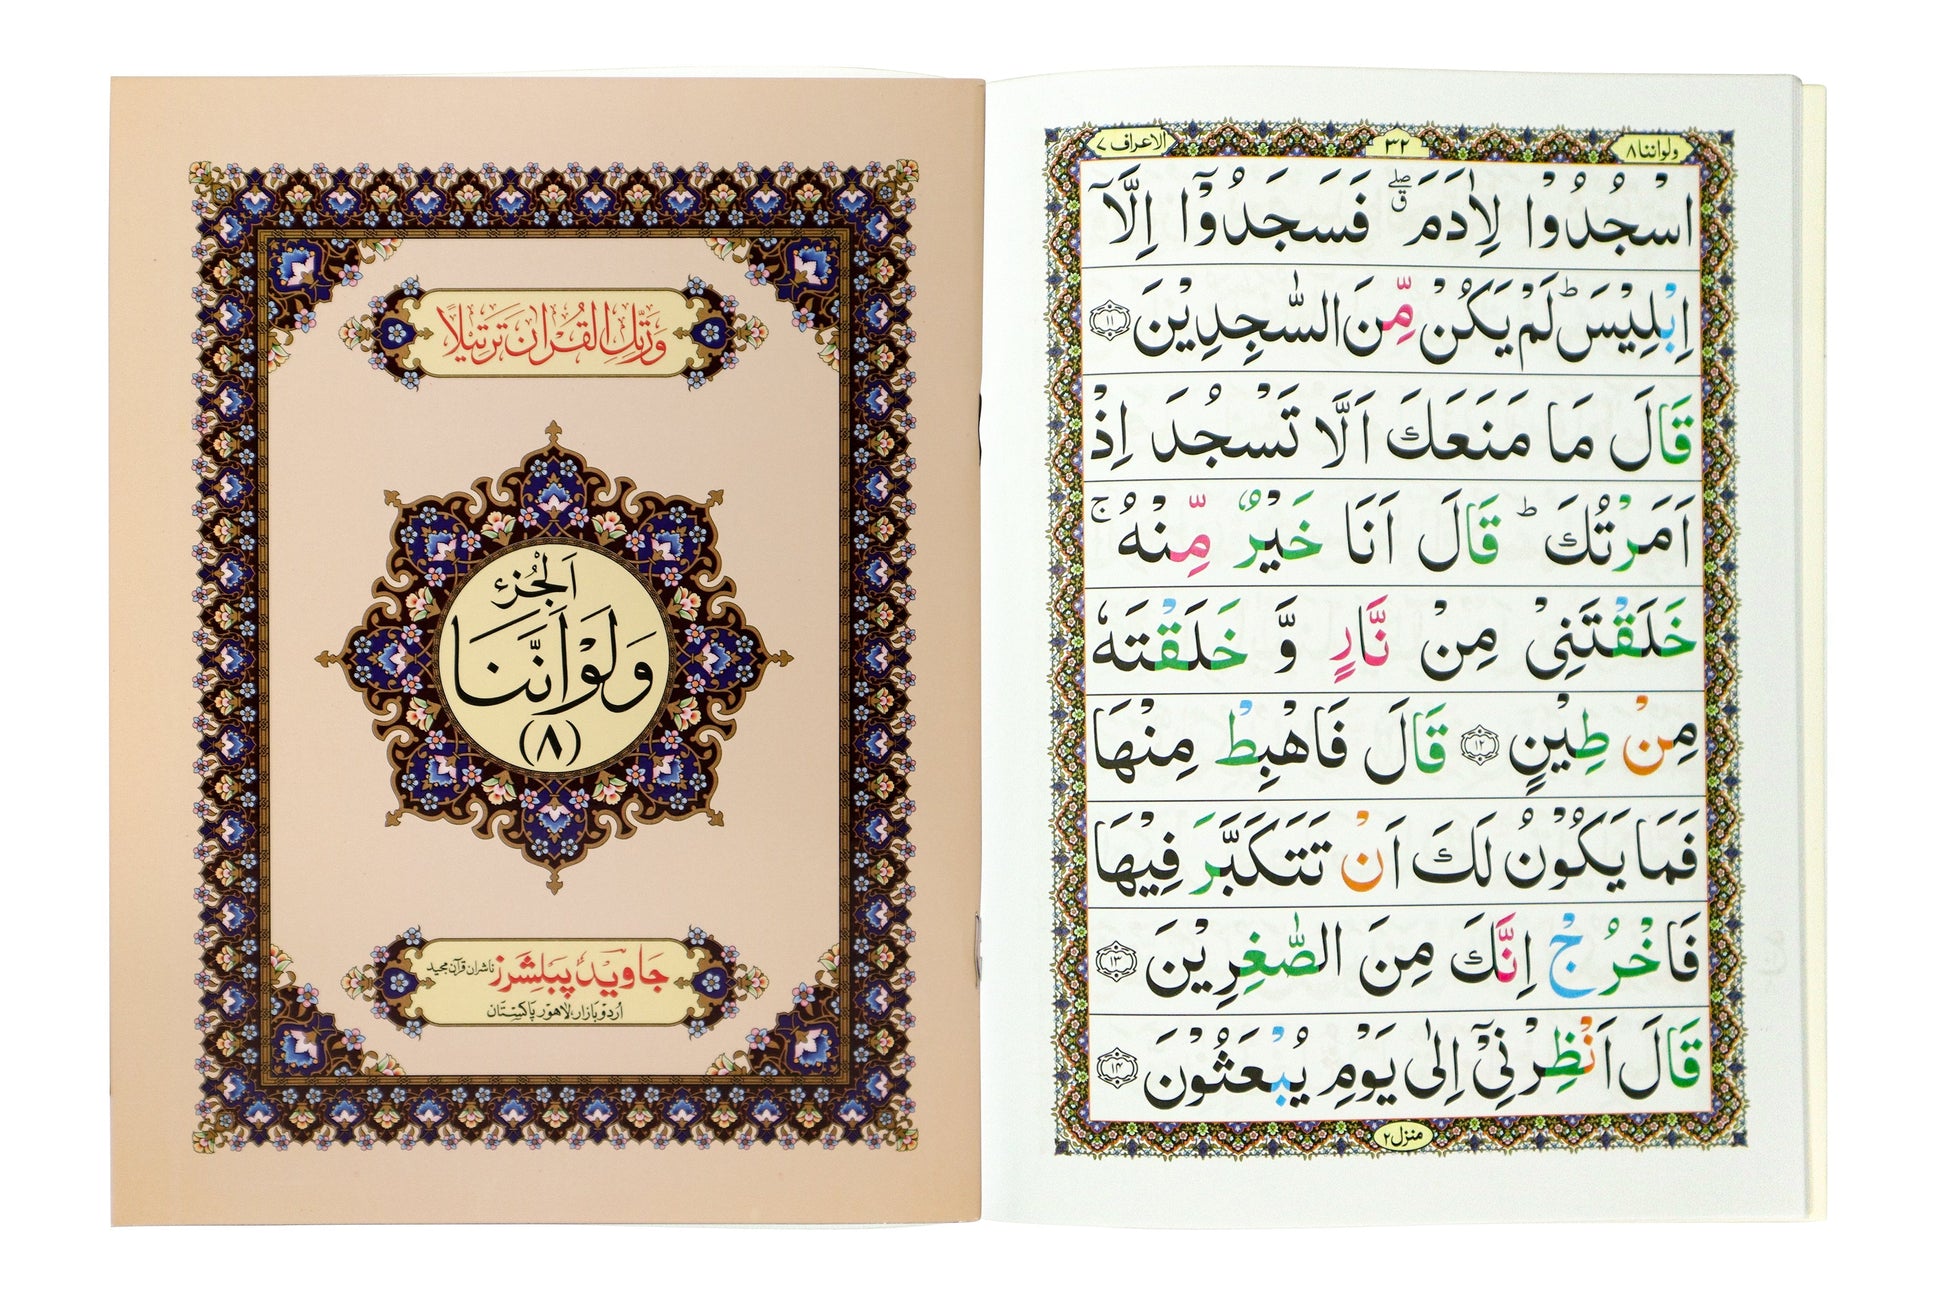 وَرَتِّلِ الْقُرْاٰنَ تَرْتِيْلًا
اَلْجُزْء
وَلَوْ اَنَّنَا
(٨)
جاوید پبلشرز ناشران قرآن مجید
اُردو بازار، لاہور پاکستان
ولواننا ٨
٣٢
الاعراف ٧
اسْجُدُوْا لِاٰدَمَ ۖۗ فَسَجَدُوْۤا اِلَّاۤ
اِبْلِيْسَ ؕ لَمْ يَكُنْ مِّنَ السّٰجِدِيْنَ ١١
قَالَ مَا مَنَعَكَ اَلَّا تَسْجُدَ اِذْ
اَمَرْتُكَ ؕ قَالَ اَنَا خَيْرٌ مِّنْهُ ۚ
خَلَقْتَنِيْ مِنْ نَّارٍ وَّ خَلَقْتَهٗ
مِنْ طِيْنٍ ١٢ قَالَ فَاهْبِطْ مِنْهَا
فَمَا يَكُوْنُ لَكَ اَنْ تَتَكَبَّرَ فِيْهَا
فَاخْرُجْ اِنَّكَ مِنَ الصّٰغِرِيْنَ ١٣
قَالَ اَنْظِرْنِيْۤ اِلٰى يَوْمِ يُبْعَثُوْنَ ١٤
منزل ٢